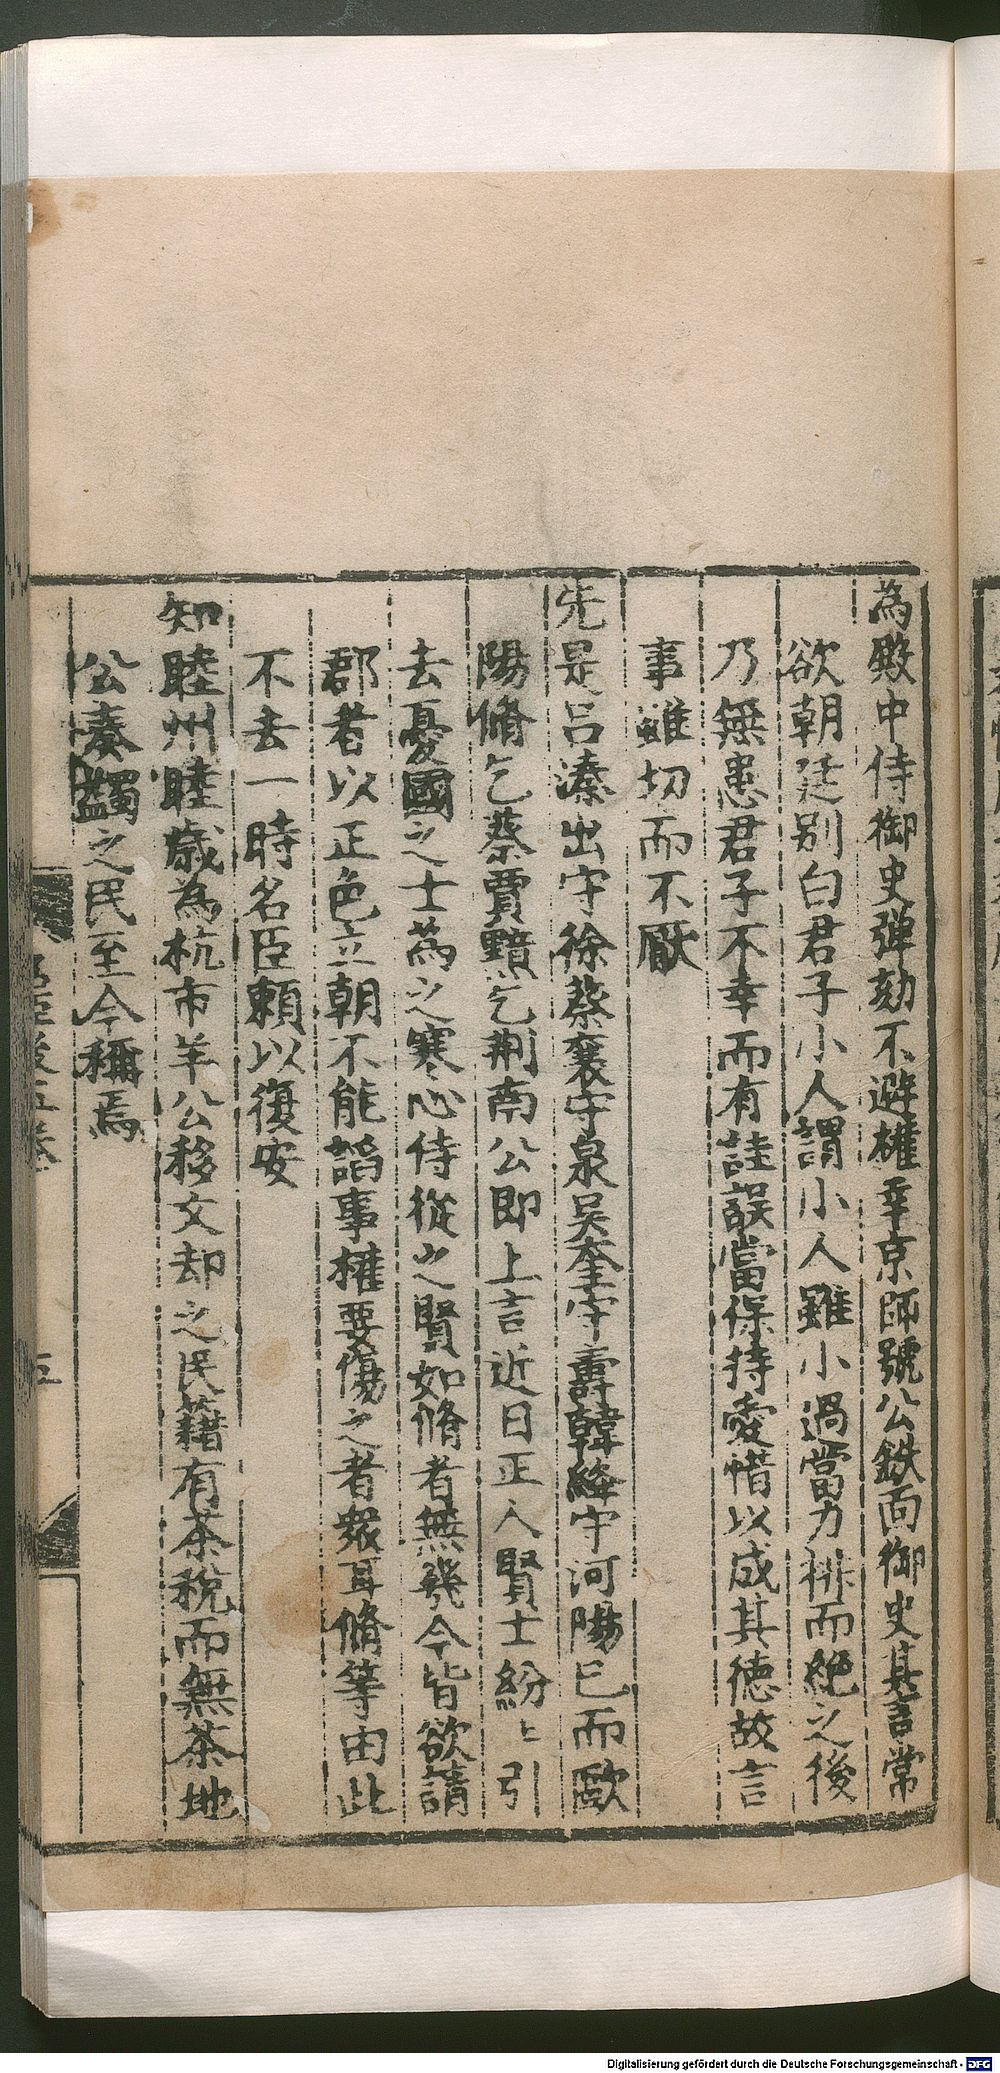 為殿中侍御史弹劾不避權幸京師號公鉄面御史其言常
欲朝廷別白君子小人謂小人雖小過當力排而絶之後
乃無患君子不幸而有詿誤當保持愛惜以成其德故言
事雖切而不厭
先是吕溱出守徐蔡襄守泉吴奎守壽韓絳守河陽已而歐
陽脩乞蔡賈黯乞荆南公即上言近日正人賢士紛〻引
去憂國之士為之寒心侍從之賢如脩者無幾今皆欲請
郡者以正色立朝不能謟事權要傷之者衆耳脩等由此
不去一時名臣頼以復安
知睦州睦歳為杭市羊公移文却之民籍有茶稅而無茶地
公奏蠲之民至今稱焉
名臣後五卷
五
Digitalisierung gefördert durch die Deutsche Forschungsgemeinschaft - DFG